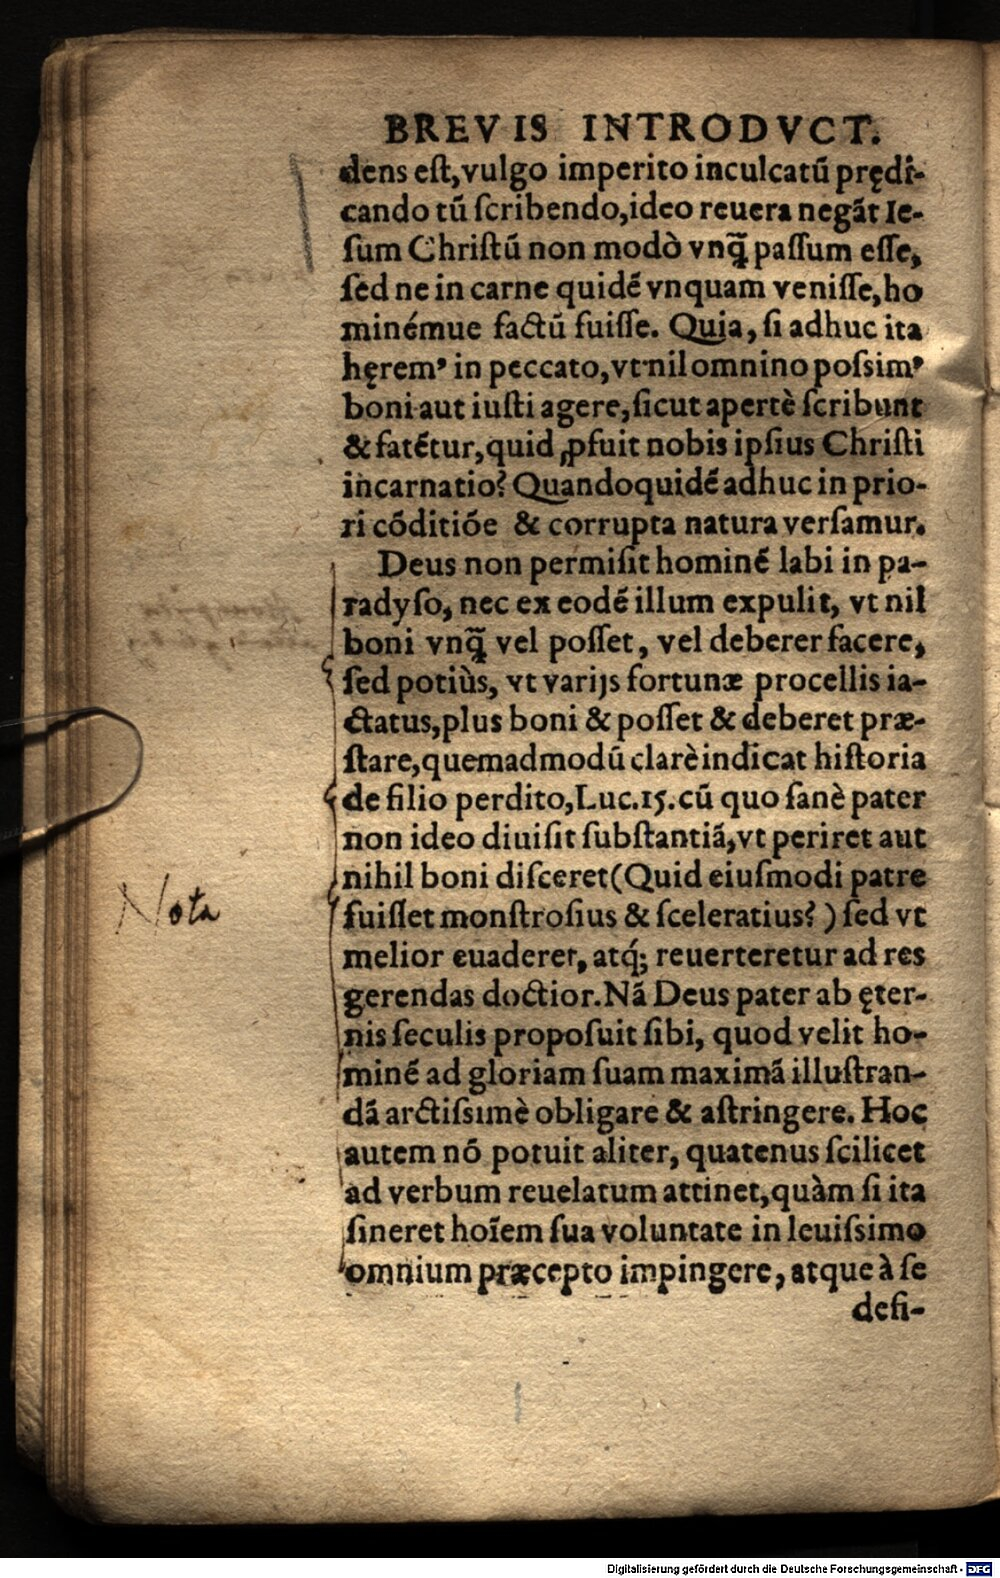 BREVIS INTRODVCT.
dens est, vulgo imperito inculcatū prędi-
cando tū ſcribendo, ideo reuera negāt Ie-
ſum Chriſtū non modò vnq̄ paſſum eſſe,
ſed ne in carne quidē vnquam veniſſe, ho
minémue factū fuiſſe. Quia, ſi adhuc ita
hęremꝰ in peccato, vt nil omnino poſsimꝰ
boni aut iuſti agere, ſicut apertè ſcribunt
& fatētur, quid ꝓfuit nobis ipſius Chriſti
incarnatio? Quandoquidē adhuc in prio-
ri cōditiōe & corrupta natura verſamur.
Deus non permiſit hominē labi in pa-
radyſo, nec ex eodē illum expulit, vt nil
boni vnq̄ vel poſſet, vel deberet facere,
ſed potiùs, vt varijs fortunæ procellis ia-
ctatus, plus boni & poſſet & deberet præ-
ſtare, quemadmodū clarè indicat hiſtoria
de filio perdito, Luc.15. cū quo ſanè pater
non ideo diuiſit ſubſtantiā, vt periret aut
nihil boni diſceret (Quid eiuſmodi patre
fuiſſet monſtroſius & ſceleratius?) ſed vt
Nota
melior euaderet, atq́; reuerteretur ad res
gerendas doctior. Nā Deus pater ab ęter-
nis ſeculis propoſuit ſibi, quod velit ho-
minē ad gloriam ſuam maximā illuſtran-
dā arctiſsimè obligare & aſtringere. Hoc
autem nō potuit aliter, quatenus ſcilicet
ad verbum reuelatum attinet, quàm ſi ita
ſineret hoīem ſua voluntate in leuiſsimo
omnium præcepto impingere, atque à ſe
defi-
Digitalisierung gefördert durch die Deutsche Forschungsgemeinschaft - DFG